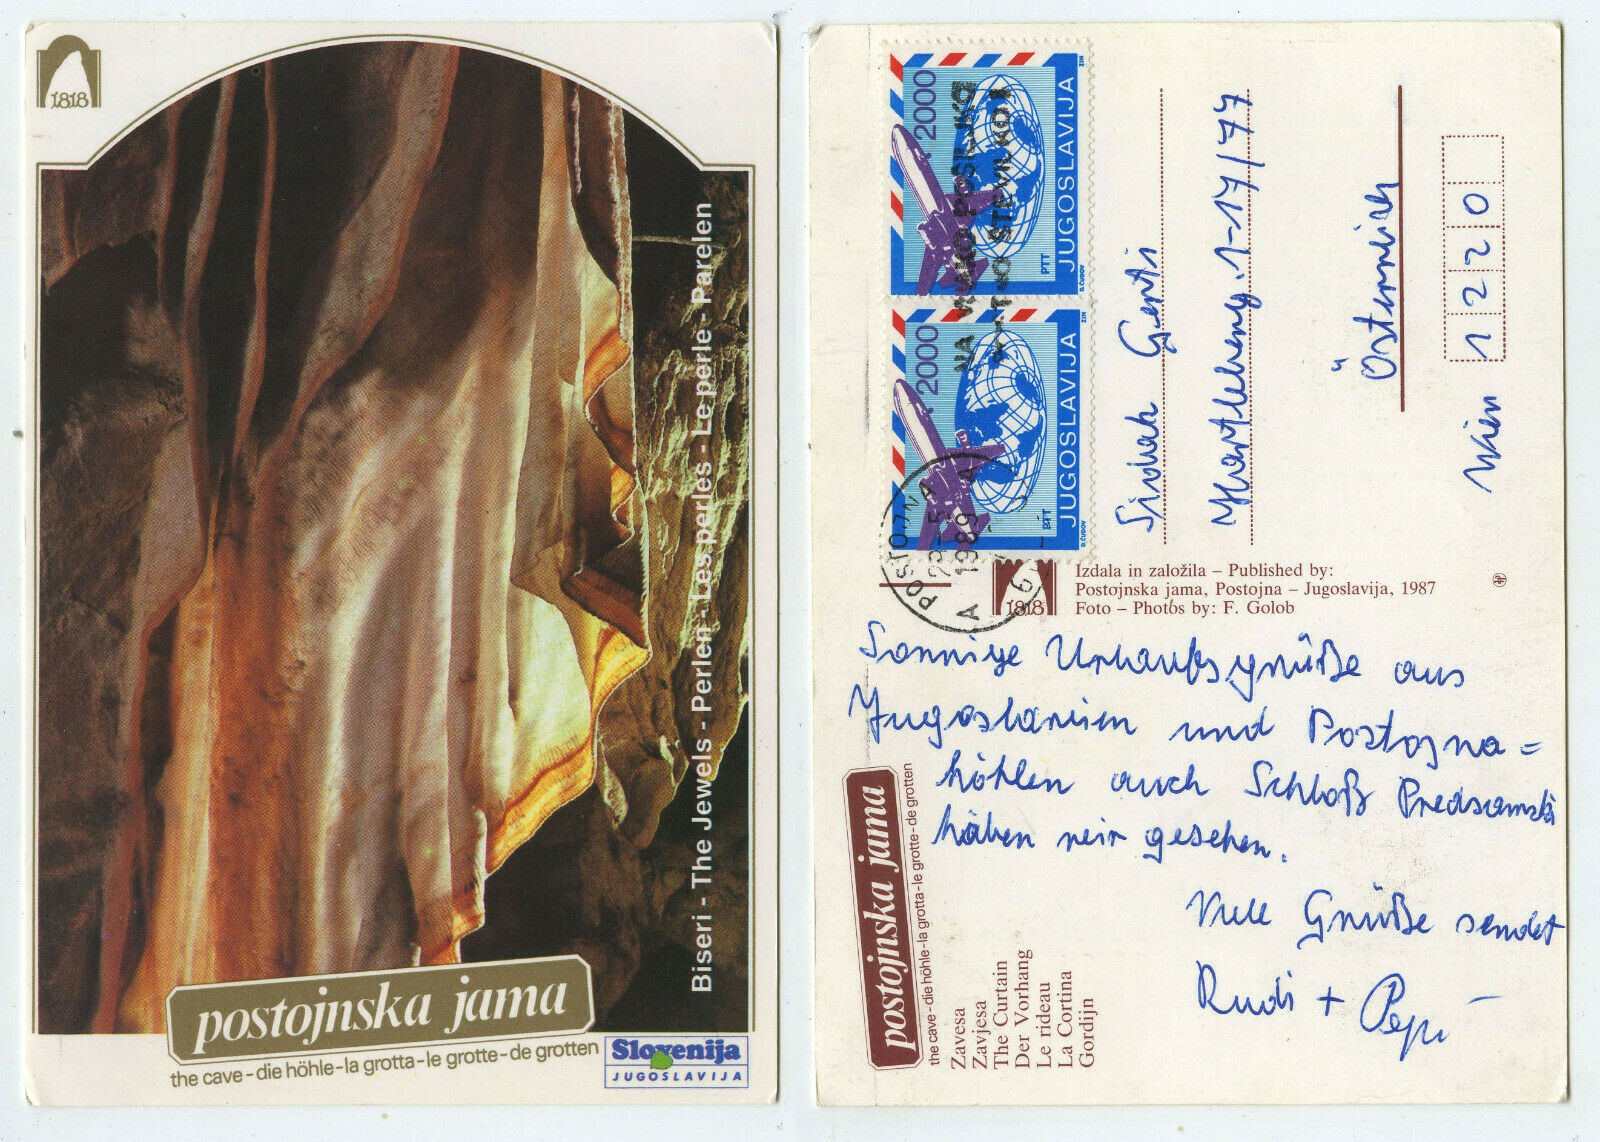 1818
Biseri - The Jewels - Perlen - Les perles - Le perle - Parelen
postojnska jama
the cave - die höhle - la grotta - le grotte - de grotten
Slovenija
JUGOSLAVIJA
2000
JUGOSLAVIJA
PTT
D. ČUDOV
ZIN
2000
JUGOSLAVIJA
PTT
D. ČUDOV
ZIN
NA VSAKO POŠILJKO
POŠTNO ŠTEVILKO!
POSTOJNA
1989
A
1-17/77
Österreich
1220
Wien
1818
Izdala in založila – Published by:
Postojnska jama, Postojna – Jugoslavija, 1987
Foto – Photos by: F. Golob
Sonnige Urlaubsgrüße aus
Jugoslawien und Postojna=
höhlen auch Schloß Predjamski
haben wir gesehen.
Viele Grüße sendet
Rudi + Pepi
postojnska jama
the cave - die höhle - la grotta - le grotte - de grotten
Zavesa
Zavjesa
The Curtain
Der Vorhang
Le rideau
La Cortina
Gordijn